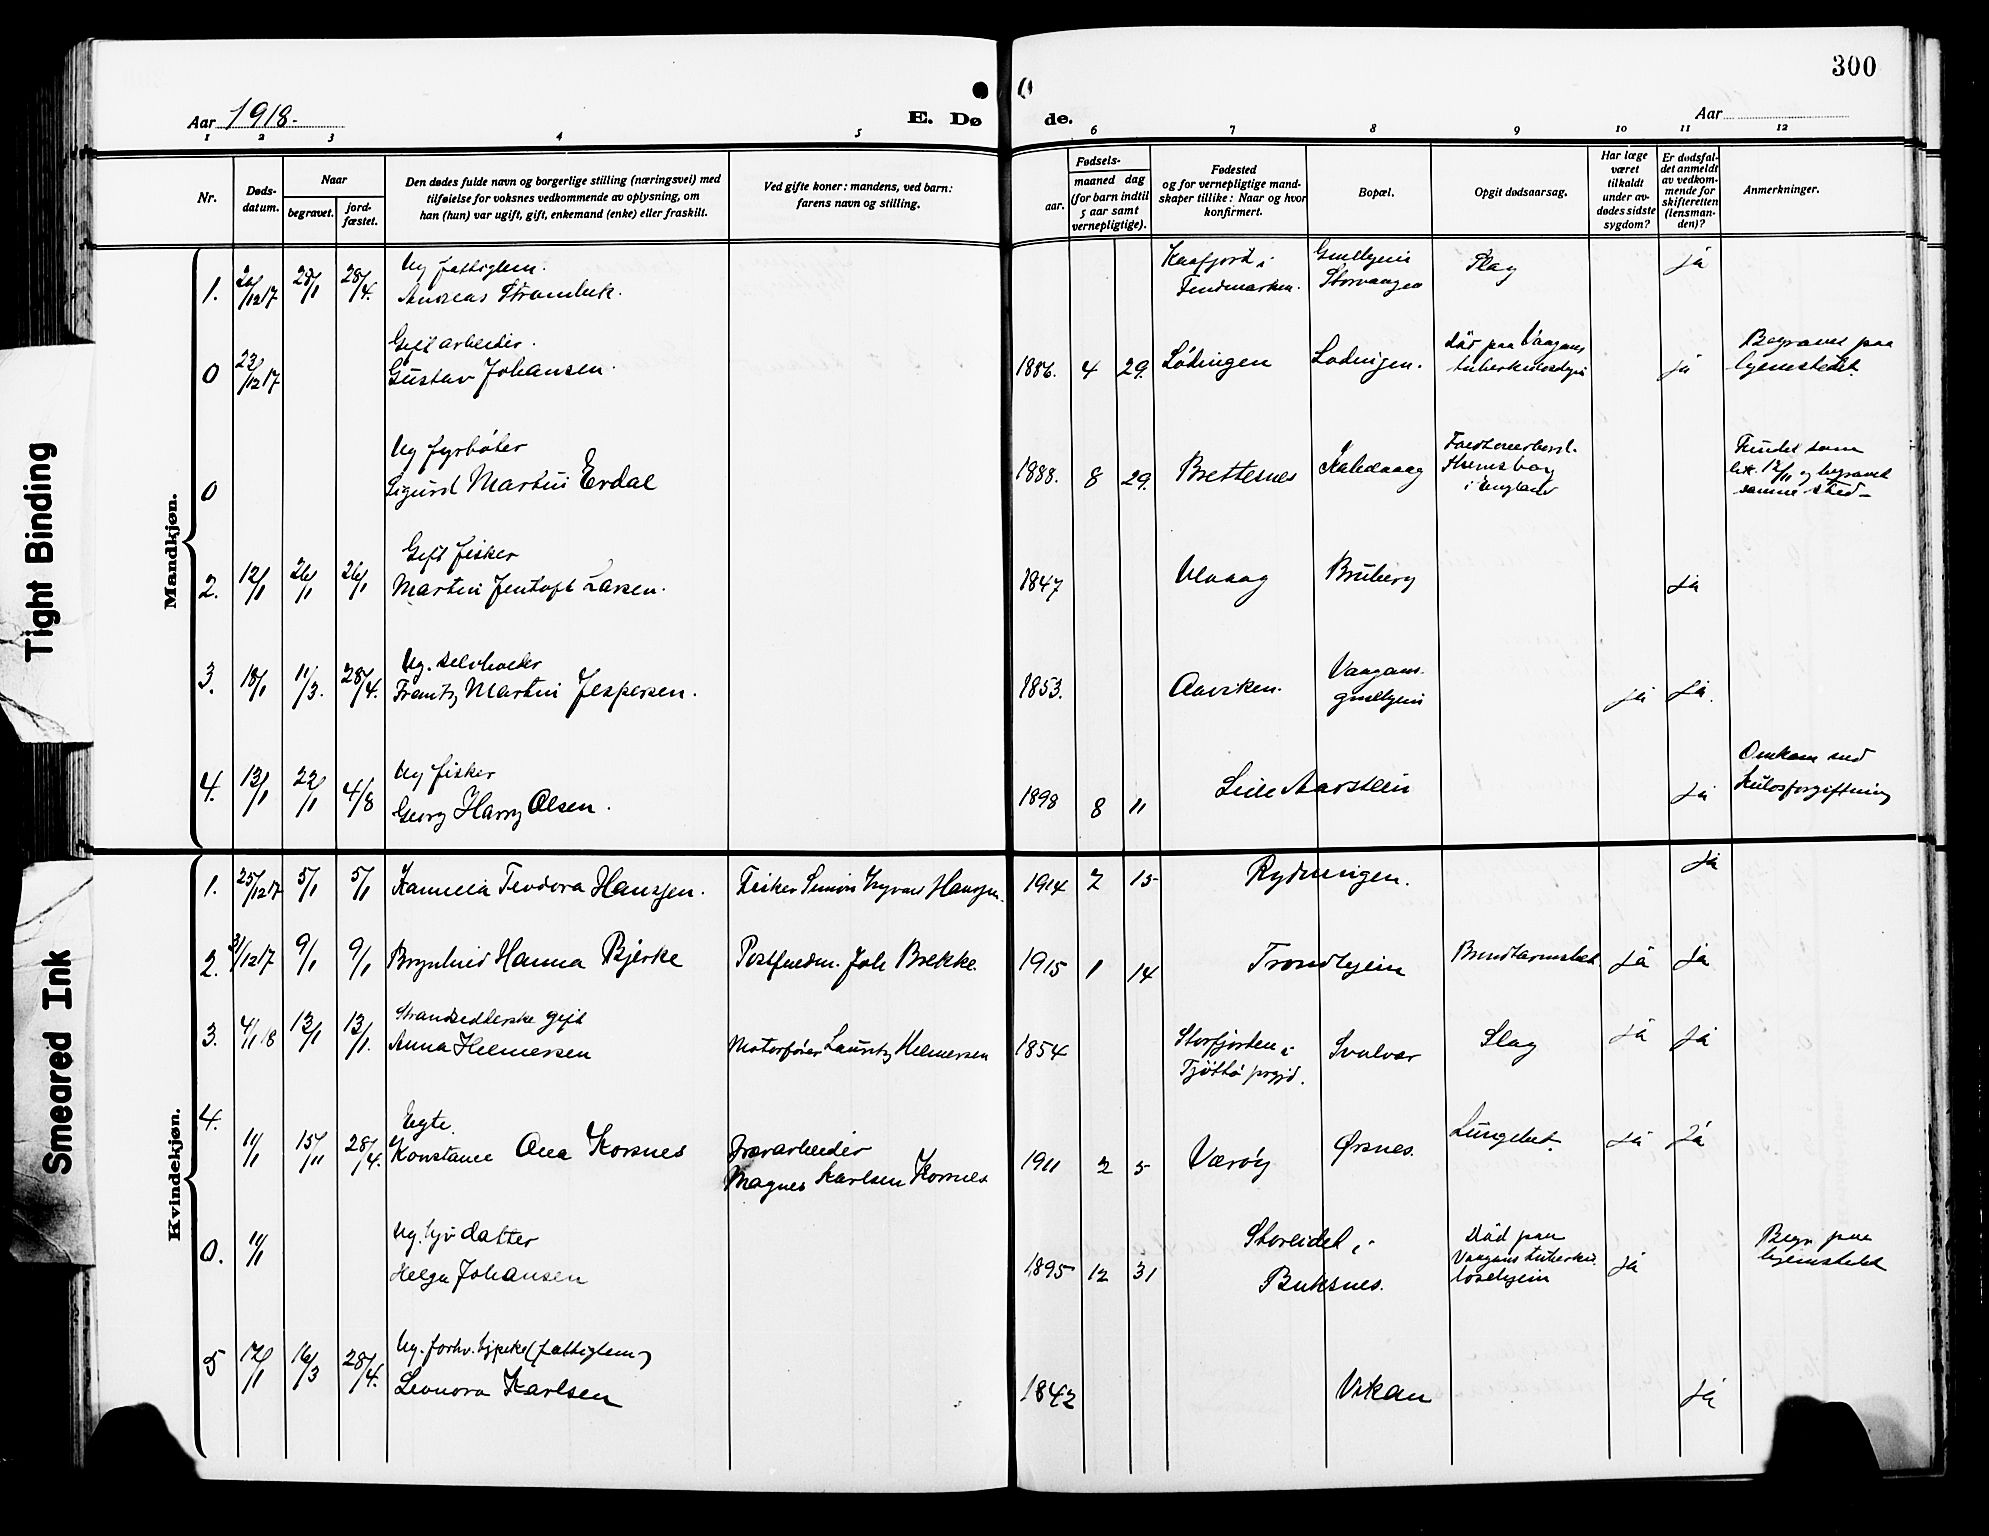 300
Aar 1918.
E. Dø
de.
Aar
1 2 3 4 5 6 7 8 9 10 11 12
Nr.
Døds-
datum.
Naar
begravet.
jord-
fæstet.
Den dødes fulde navn og borgerlige stilling (næringsvei) med
tilføielse for voksnes vedkommende av oplysning, om
han (hun) var ugift, gift, enkemand (enke) eller fraskilt.
Ved gifte koner: mandens, ved barn:
farens navn og stilling.
Fødsels-
aar.
maaned dag
(for barn indtil
5 aar samt
vernepligtige).
Fødested
og for vernepligtige mand-
skaper tillike: Naar og hvor
konfirmert.
Bopæl.
Opgit dødsaarsag.
Har læge
været
tilkaldt
under av-
dødes sidste
sygdom?
Er dødsfal-
det anmeldt
av vedkom-
mende for
skifteretten
(lensman-
den)?
Anmerkninger.
Mandkjøn.
1. 28/1 28/4. Ug fattiglem.
Andreas
Kaafjord i
Finmarken.
Storvaagen
Slag
ja
0 22/12 17 Gift arbeider.
Gustav Johansen.
1886. 4 29. Lødingen Lødingen.
Død paa Vaagans
ja
Begravet paa
hjemstedet.
0 Ug fyrbøter
Sigurd Martin Erdal
1888. 8 29. Brettesnes Kabelvaag
i England
Fundet som
lik 12/11 og begravet
samme sted
2. 12/1 26/1 26/1 Gift fisker
Martin Jentoft Larsen.
1847 Ulvaag Bruberg
ja
3. 18/1 11/3. 28/4. Ug.
Frantz Martin Jespersen.
1853. Aaviken. Vaagans
ja ja.
4. 13/1 22/1 4/8 Ug fisker
Georg Harry Olsen.
1898 8 11 Lille
ja
Omkom ved
kulosforgiftning
Kvindekjøn.
1. 25/12 17 5/1 5/1 Kamilla Teodora Hanssen. Fisker Simon
1914 2 15 Rydningen.
ja
2. 31/12 17 9/1 9/1 Brynhild Hanna Bjerke Postfuldm. Joh Brekke.
1915 1 14 Trondhjem
ja ja
3. 4/1 18 13/1 13/1. gift
Anna Helmersen Motorfører Lauritz Helmersen
1854 Storfjorden i
Tjøttø prgjd.
Svolvær
Slag
ja ja
4. 11/1 15/11 28/4. Egte.
Konstance Korsnes
Jernarbeider
Magnus Karlsen Korsnes
1911 2 5 Værøy Ørsnes.
Lungebet.
ja ja
0. 11/1 Ug. datter
Helga Johansen
1895 12 31 Storeidet i
Buksnes.
Død paa
Vaagans tuberku
losehjem
ja
Begr paa
hjemstedet
5 12/1 16/3 28/4. Ug. forhv. (fattiglem)
Leonora Karlsen
1842 Vikan
ja
Tight Binding
Smeared Ink